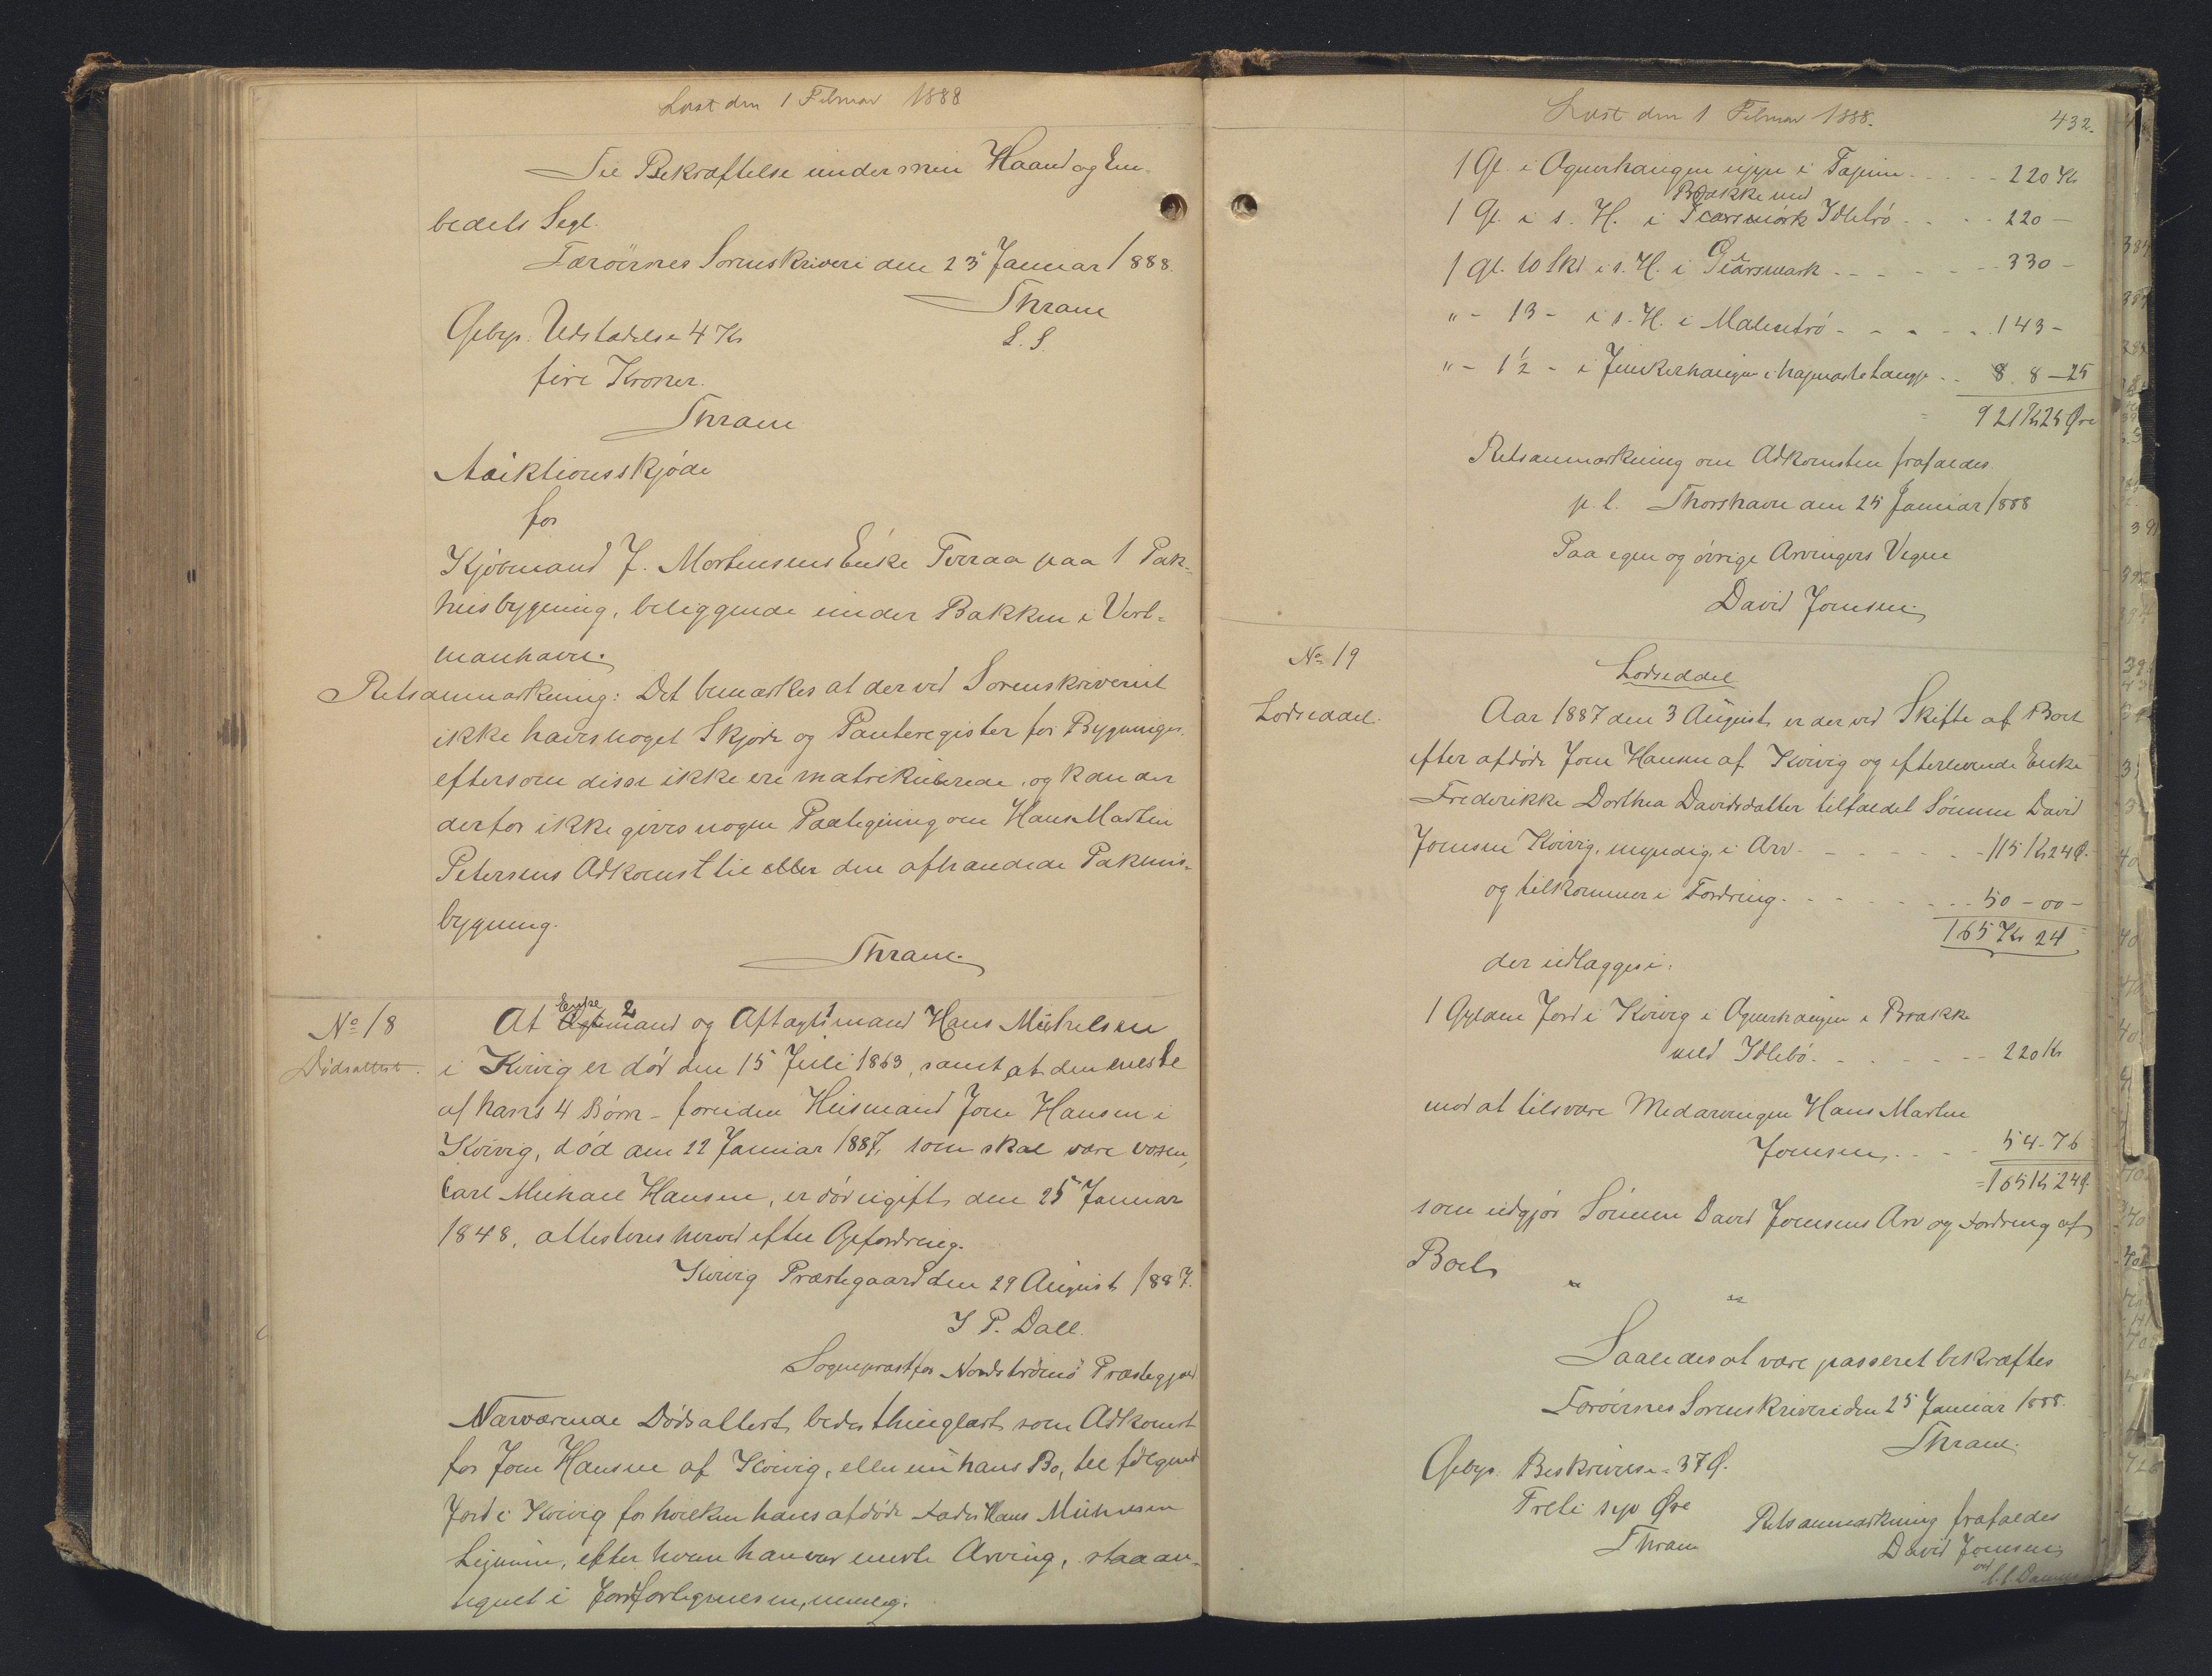 Læst den 1 Februar 1888
Til Bekræftelse under min Haand og Em-
bedets Segl.
Færøernes Sorenskriveri den 23 Januar 1888.
Thrane
L. S.
Gebyr. Udstædelse 4 Kr
fire Kroner.
Thrane
Auktionsskjøde
for
Kjøbmand J. Mortensens Enke Tveraa paa 1 Pak-
husbygning, beliggende under Bakken i Vest-
manhavn.
Retsanmærkning: Det bemærkes at der ved Sorenskriveriet
ikke haves noget Skjøde og Panteregister for Bygninger
eftersom disse ikke ere matrikulerede, og kan der
derfor ikke gives nogen Paategning om Hans Martin
Petersens Adkomst til eller den afhændede Pakhus-
bygning.
Thrane
No 18
Dødsattest.
At Enke 2 mand og Aftægtsmand Hans Michelsen
i Kvivig er død den 15 Juli 1863, samt at den eneste
af hans 4 Børn - foruden Husmand Joen Hansen i
Kvivig, død den 22 Januar 1887, som skal være voxen,
Carl Michael Hansen, er død ugift den 25 Januar
1848, attesteres herved efter Opfordring.
Kvivig Præstegaard den 29 August 1887.
J P. Dall.
Sognepræst for Nordstrømø Præstegjæld
Nærværende Dødsattest bedes thinglæst som Adkomst
for Joen Hansen af Kvivig, eller nu hans Bo, til følgende
Jord i Kvivig for hvilken hans afdøde Fader Hans Michelsen
Lejnum, efter hvem han var eneste Arving, staar an-
tegnet i Jordfortegnelsen, nemlig:
Læst den 1 Februar 1888.
432.
1 Gl. i Ognerhaugen uppe i Tajnum - - - - 220 Kr
Brække med
1 Gl. i s. H. i Idlebø - - - 220 —
1 Gl. 10 Sk i s. H. i Giarsmark - - - - - 330 -
" - 13 - i s. H. i Malentrø - - - - - 143 -
" - 1½ - i Junkerhaugen i - - 8 - 25
= 921 Kr 25 Øre
Retsanmærkning om Adkomsten frafaldes.
p. t. Thorshavn den 25 Januar 1888
Paa egne og øvrige Arvingers Vegne
David Joensen
No 19
Lodseddel.
Lodseddel
Aar 1887 den 3 August er der ved Skifte af Boet
efter afdøde Joen Hansen af Kvivig og efterlevende Enke
Frederikke Dorthea Davidsdatter tilfaldet Sønnen David
Joensen Kvivig, myndig, i Arv - - - - - 115 Kr 24 Ø.
og tilkommer i Fordring - - - - - - 50 - 00 -
165 Kr 24
der udlægges i:
1 Gylden Jord i Kvivig i Ognerhaugen i Brække
med Idlebø - - - - - 220 Kr
mod at tilsvare Medarvingen Hans Martin
Joensen - - - 54 - 76
= 165 Kr 24 Ø.
som udgjør Sønnen David Joensens Arv og Fordring af
Boet
" "
Saaledes at være passeret bekræftes
Færøernes Sorenskriveri den 25 Januar 1888.
Thrane
Gebyr. Beskrivelse 37 Ø.
Treti syv Øre
Thrane
Retsanmærkning frafaldes
David Joensen